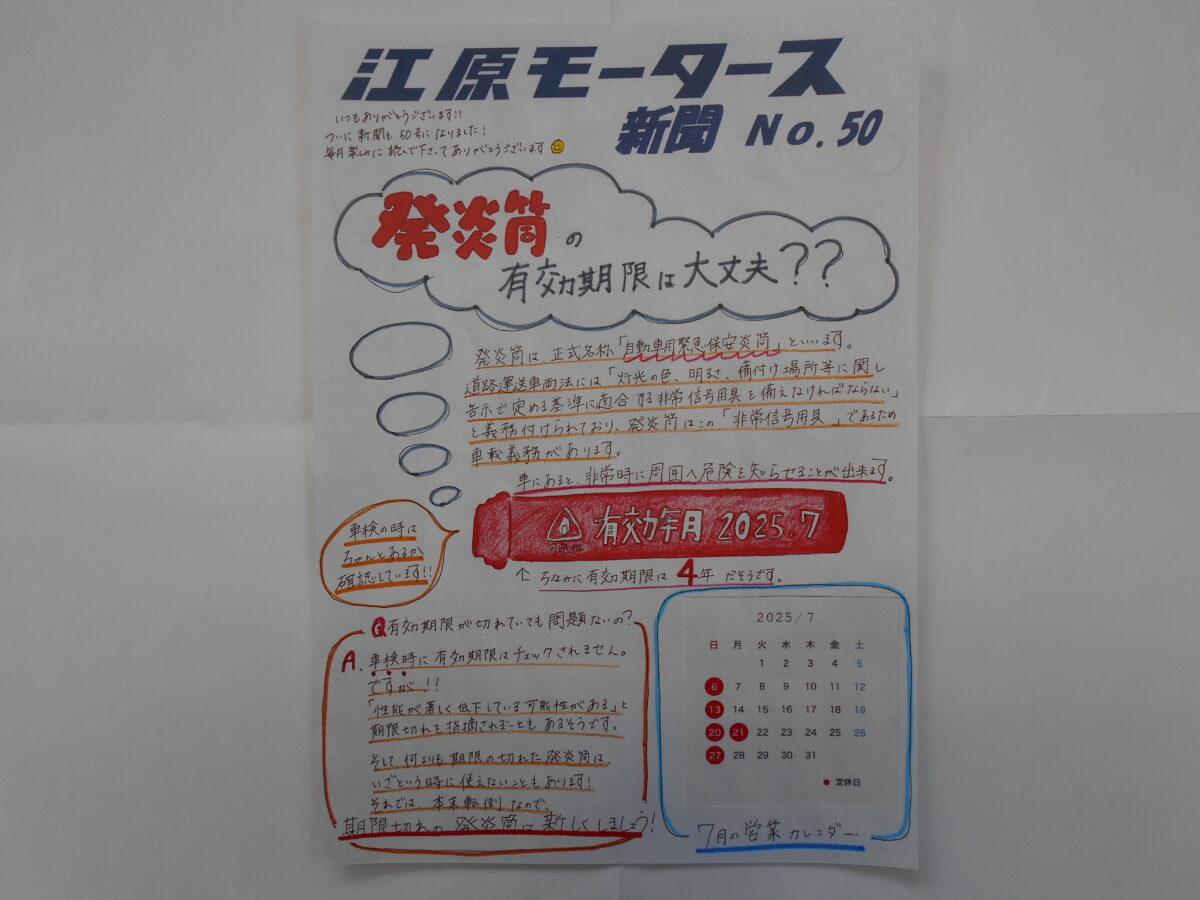 江原モータース
新聞 No.50
いつもありがとうございます!!
ついに新聞も50号になりました!
毎月楽しみに読んで下さってありがとうございます
発炎筒の
有効期限は大丈夫??
発炎筒は、正式名称「自動車用緊急保安炎筒」といいます。
道路運送車両法には「灯光の色、明るさ、備付け場所等に関し
告示で定める基準に適合する非常信号用具を備えなければならない」
と義務付けられており、発炎筒はこの「非常信号用具」であるため
車載義務があります。
車にあると、非常時に周囲へ危険を知らせることが出来ます。
車検の時は
ちゃんとあるか
確認しています!!
有効年月 2025.7
↑ ちなみに有効期限は4年だそうです。
Q有効期限が切れていても問題ないの?
A、車検時に有効期限はチェックされません。
ですが!!
「性能が著しく低下している可能性がある」と
期限切れを指摘されることもあるそうです。
そして何よりも期限の切れた発炎筒は、
いざという時に使えないこともあります!
それでは、本末転倒なので、
期限切れの発炎筒は新しくしましょう!
2025/7
日 月 火 水 木 金 土
1 2 3 4 5
6 7 8 9 10 11 12
13 14 15 16 17 18 19
20 21 22 23 24 25 26
27 28 29 30 31
● 定休日
7月の営業カレンダー